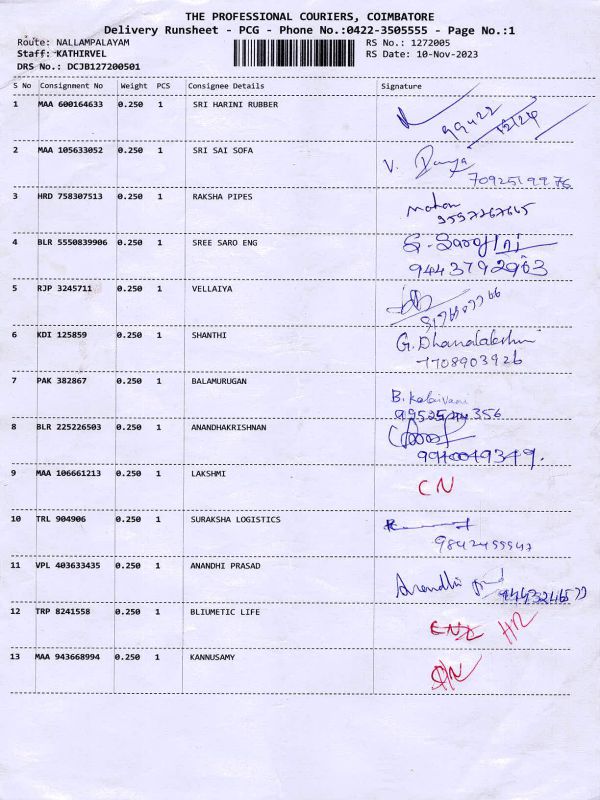 THE PROFESSIONAL COURIERS, COIMBATORE
Delivery Runsheet - PCG - Phone No.:0422-3505555 - Page No.:1
Route: NALLAMPALAYAM RS No.: 1272005
Staff: KATHIRVEL RS Date: 10-Nov-2023
DRS No.: DCJB127200501
S No Consignment No Weight PCS Consignee Details Signature
1 MAA 600164633 0.250 1 SRI HARINI RUBBER
2 MAA 105633052 0.250 1 SRI SAI SOFA V. Divya
7092519976
3 HRD 758307513 0.250 1 RAKSHA PIPES Mohan
4 BLR 5550839906 0.250 1 SREE SARO ENG
9443792903
5 RJP 3245711 0.250 1 VELLAIYA
6 KDI 125859 0.250 1 SHANTHI G. Dhanalakshmi
7708903926
7 PAK 382867 0.250 1 BALAMURUGAN B. Kalaivani
8 BLR 225226503 0.250 1 ANANDHAKRISHNAN
9 MAA 106661213 0.250 1 LAKSHMI CN
10 TRL 904906 0.250 1 SURAKSHA LOGISTICS
11 VPL 403633435 0.250 1 ANANDHI PRASAD Anandhi
12 TRP 8241558 0.250 1 BLIUMETIC LIFE
13 MAA 943668994 0.250 1 KANNUSAMY